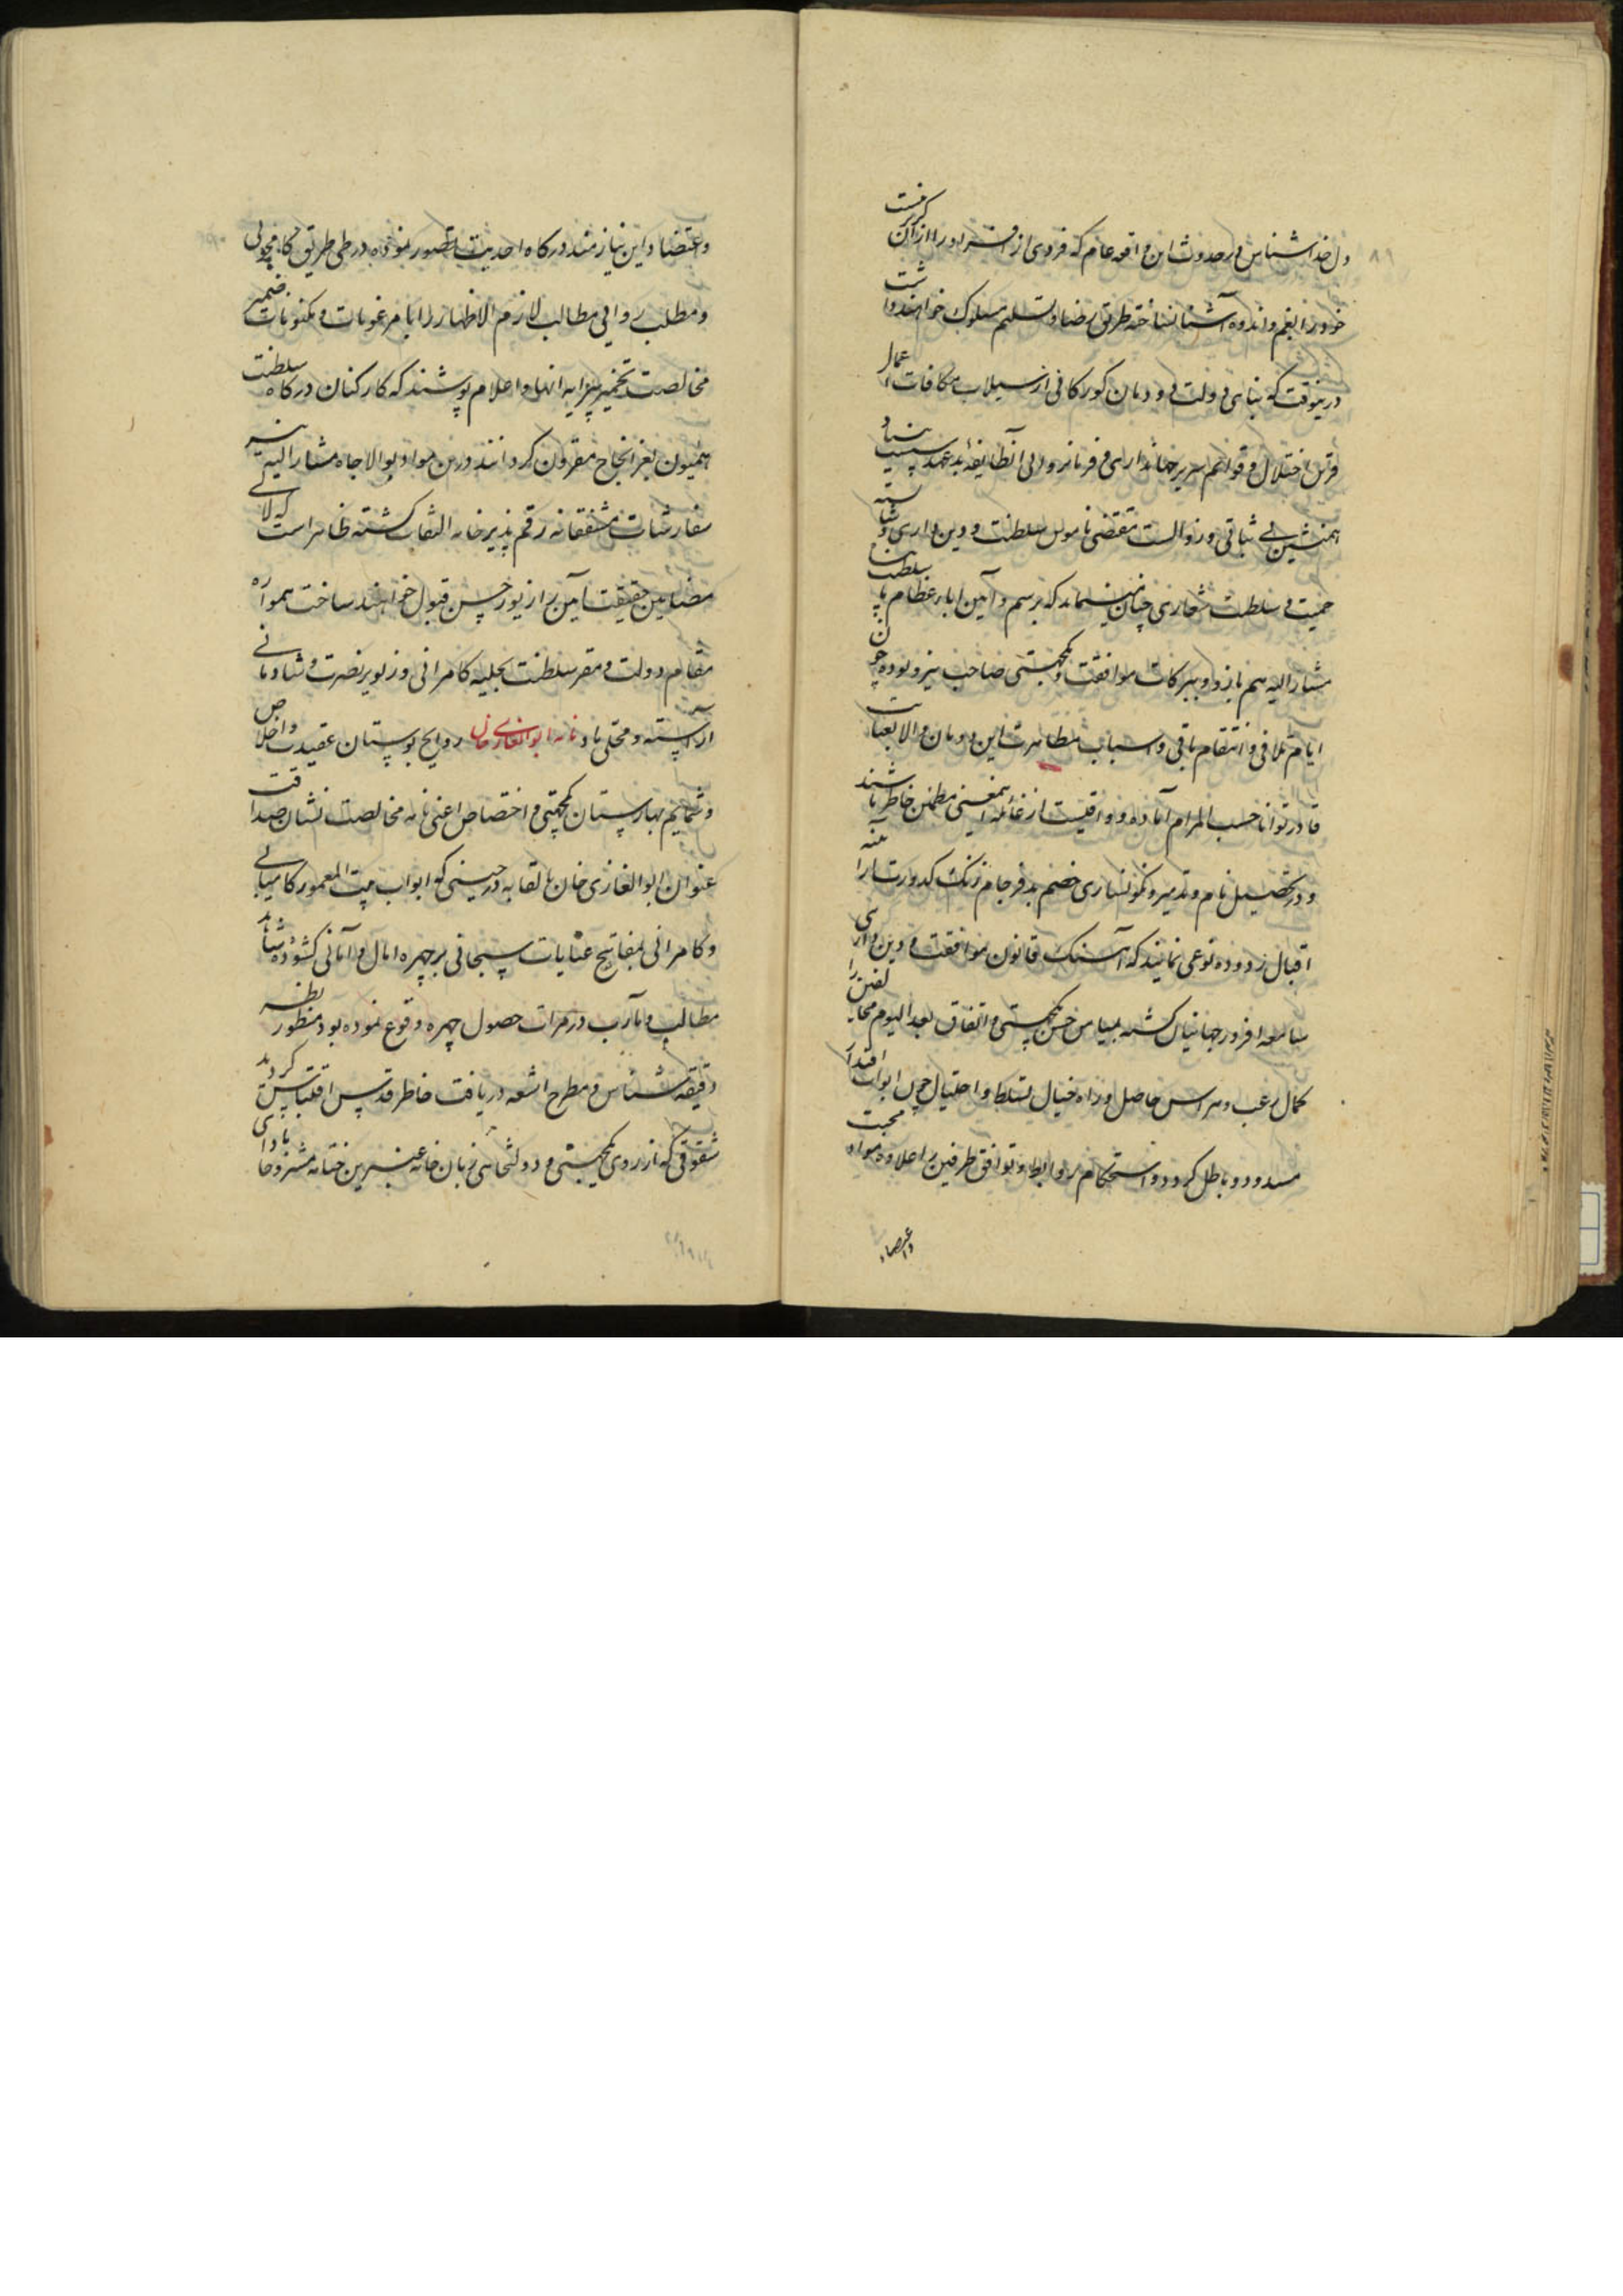 دل خداشناس در حدوث این واقعه عام که فردی از افراد را از آن گریز نیست
خود را بغم و اندوه آشنا نساخته طریق رضا و تسلیم مسلوک خواهند داشت
درینوقت که بنای دولت دودمان کورکانی از سیلاب مکافات اعمال
اختلال و قوائم سریر جهانداری و فرمانروایی آنطایفه بدعهد
همنشین بی ثباتی و زوالست مقتضی ناموس سلطنت و دین داری و
حمیت و سلطنت شعاری چنان مینماید که برسم و آئین اباء عظام سلطنت
مشار الیه هم بازو و ببرکات موافقت و یکجهتی صاحب نیرو بوده چون
ایام تلافی و انتقام باقی و اسباب مظاهرت این دودمان والا بعنایت
قادر توانا حسب المرام آماده و وافیست از غائله اینمعنی مطمئن خاطر باشند
و در تحصیل نام و تدمیر و نکونساری خصم بدفرجام زنگ کدورت از آئینه
اقبال زدوده نوعی نمایند که آهنگ قانون موافقت و دین داری
سامعه افروز جهانیان گشته بمیامن حسن یکجهتی و اتفاق بعد الیوم مخالفین را
کمال رعب و هراس حاصل و راه خیال تسلط و احتیال چون ابواب اقتدار
مسدود و باطل گردد و استحکام روابط و توافق طرفین را علاوه مواد محبت
و اعتضاد
و اعتضاد این نیازمند درگاه احدیت تصور نموده در طی طریق
و مطلب روایی مطالب لازم الاظهار را با مرغوبات و مکنونات ضمیر
مخالصت تخمیر پیرایه انها و اعلام پوشند که کارکنان درگاه سلطنت
همیون بعز انجاح مقرون گردانند درین مواد بوالاجاه مشار الیه نیز
سفارشات مشفقانه رقم پذیر خامه التفات گشته ظاهر است که لالی
مضامین حقیقت آئین را زیور حسن قبول خواهند ساخت همواره
مقام دولت و مقر سلطنت بحلیه کامرانی و زیور نصرت و شادمانی
آراسته و محلی باد نامه ابوالغازی خان روایح بوستان عقیدت و اخلاص
و شمایم بهارستان یکجهتی و اختصاص اعنی نامه مخالصت نشان صداقت
عنوان ابوالغازی خان بالقابه در حینی که ابواب بیت المعمور کامیابی
و کامرانی بمفاتیح عنایات سبحانی بر چهره امال و امانی گشوده
مطالب و مآرب در مرات حصول چهره وقوع نموده بود منظور نظر
دقیقه شناس و مطرح اشعه دریافت خاطر قدس اقتباس گردید
شقوقی که از روی یکجهتی و دولتخواهی زبان خامه عنبرین ختامه